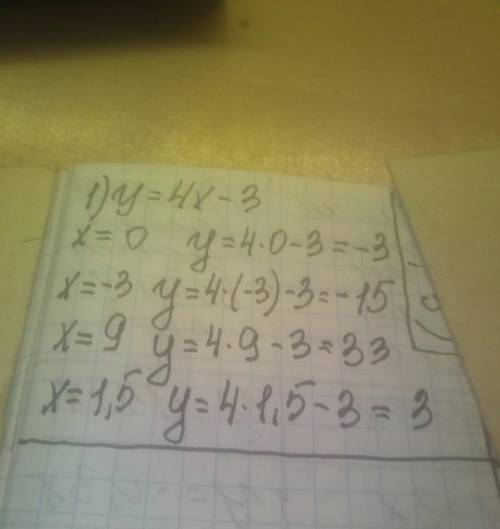 1) y = 4x - 3
x = 0 y = 4·0 - 3 = -3
x = -3 y = 4·(-3) - 3 = -15
x = 9 y = 4·9 - 3 = 33
x = 1,5 y = 4·1,5 - 3 = 3